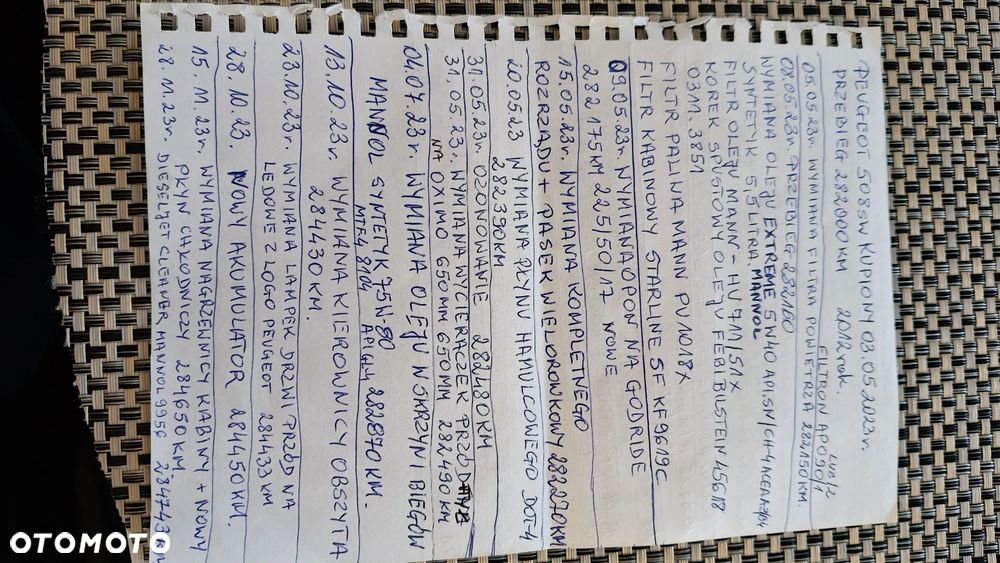 PEUGEOT 508SW KUPIONY 03.05.2023r.
PRZEBIEG 282000KM 2012 rok.
05.05.23r. WYMIANA FILTRA POWIETRZA 282150KM.
FILTRON AP090/1
08.05.23r. PRZEBIEG 282160
WYMIANA OLEJU EXTREME 5W40 API SN/CH-4 ACEA
SYNTETIK 5,5 LITRA MANNOL
FILTR OLEJU MANN - HU 711/51X
KOREK SPUSTOWY OLEJU FEBI BILSTEIN 45618
03M. 3851
FILTR PALIWA MANN PU 1018X
FILTR KABINOWY STARLINE SF KF9619C
09.05.23r. WYMIANA OPON NA GODRIDE
282175KM 225/50/17 NOWE
15.05.23r. WYMIANA KOMPLETNEGO
ROZRZĄDU + PASEK WIELOROWKOWY 282270KM
20.05.23 WYMIANA PŁYNU HAMULCOWEGO DOT4
282390KM
31.05.23r. OZONOWANIE 282480KM
31.05.23r. WYMIANA WYCIERACZEK PRZÓD
NA OXIMO 650MM 650MM 282490KM
04.07.23r. WYMIANA OLEJU W SKRZYNI BIEGÓW
MANNOL SYNTETYK 75W-80 282870KM.
MTF-4 8104 API GL4
13.10.23r. WYMIANA KIEROWNICY OBSZYTA
284430KM.
23.10.23r. WYMIANA LAMPEK DRZWI PRZÓD NA
LEDOWE Z LOGO PEUGEOT 284433KM
28.10.23. NOWY AKUMULATOR 284450KM.
15.11.23r. WYMIANA NAGRZEWNICY KABINY + NOWY
PŁYN CHŁODNICZY 284650KM
28.11.23r. DESEL JET CLEANER MANNOL 9956
OTOMOTO